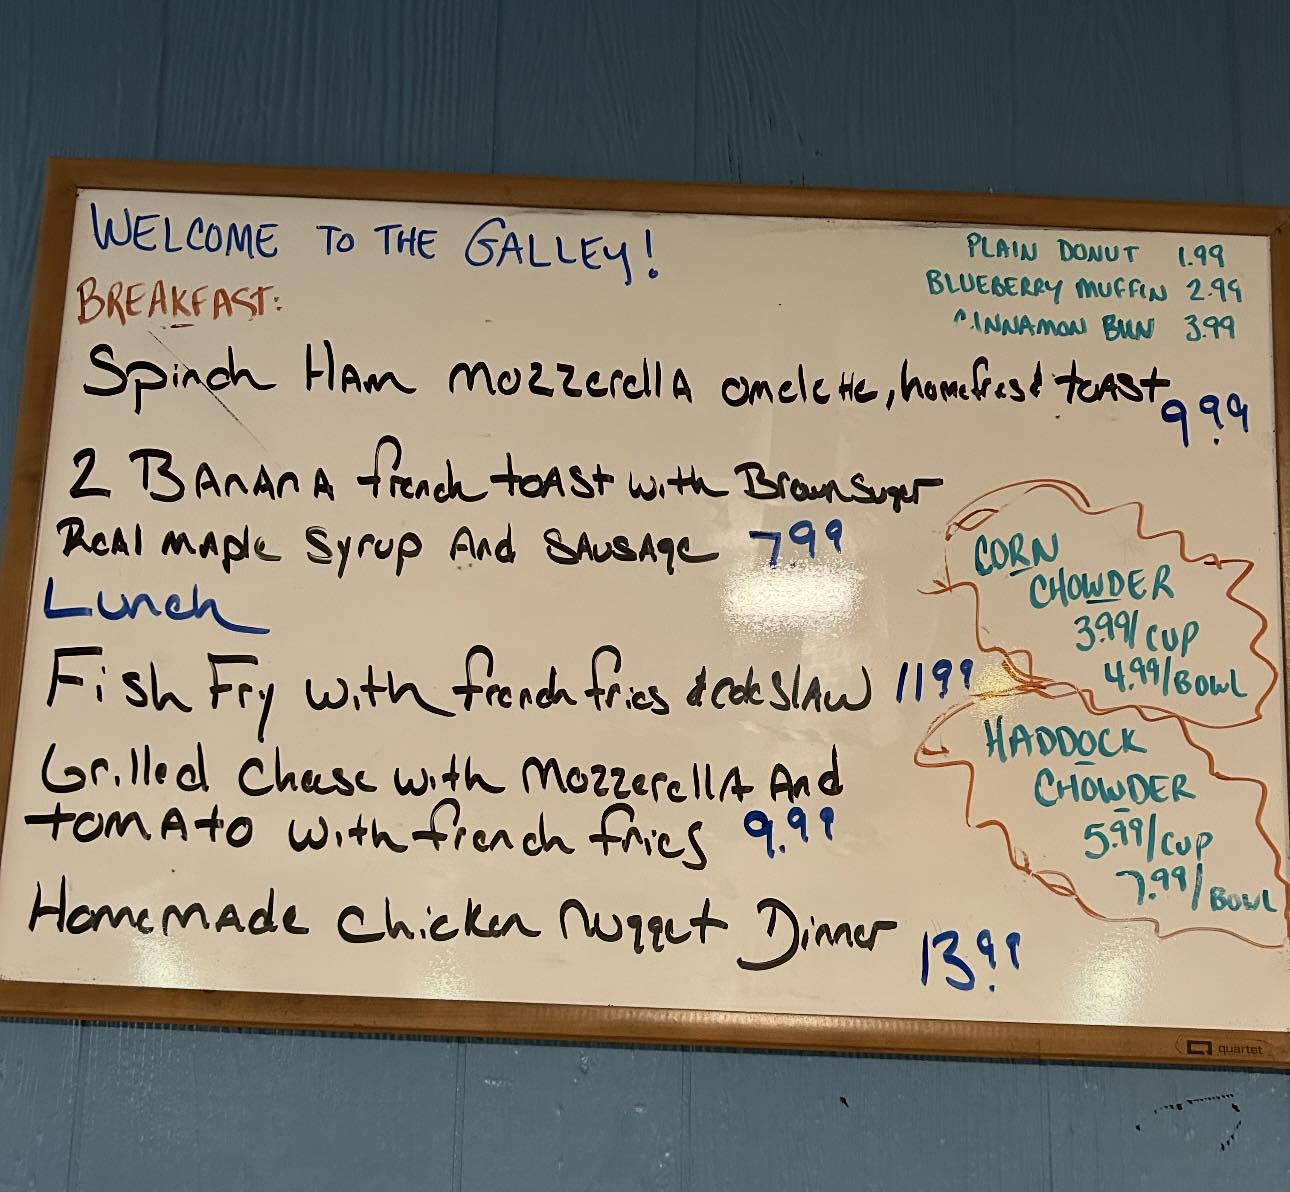 WELCOME TO THE GALLEY!
PLAIN DONUT 1.99
BLUEBERRY MUFFIN 2.99
CINNAMON BUN 3.99
BREAKFAST:
Spinch HAm mozzerellA omelette, homefries & toAst 9.99
2 BAnAnA french toAst with Brown Suger
ReAl mAple Syrup And SAusAge 7.99
Lunch
Fish Fry with french fries & coleslAw 11.99
Grilled cheese with mozzerellA And
tomAto with french fries 9.99
HomemAde chicken nugget Dinner 13.99
CORN
CHOWDER
3.99/CUP
4.99/BOWL
HADDOCK
CHOWDER
5.99/CUP
7.99/BOWL
quartet